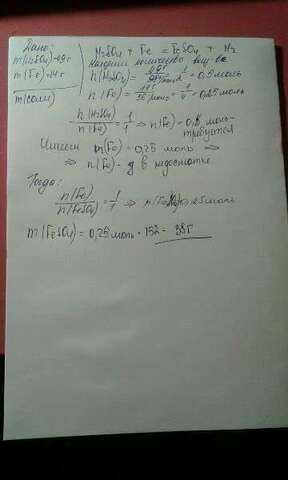 Дано:
m(H2SO4)=49г
m(Fe)=14г
m(соли)
H2SO4 + Fe = FeSO4 + H2
Находим количество вещ-ва
n(H2SO4) = 49г / 98г/моль = 1/2 = 0,5 моль
n(Fe) = 14г / 56г/моль = 1/4 = 0,25 моль
n(H2SO4) / n(Fe) = 1/1 ⇒ n(Fe) = 0,5 моль -
требуется
Имеем n(Fe) = 0,25 моль ⇒
⇒ n(Fe) - в недостатке
Тогда:
n(Fe) / n(FeSO4) = 1/1 ⇒ 0,25 моль
m(FeSO4) = 0,25 моль · 152 = 38г